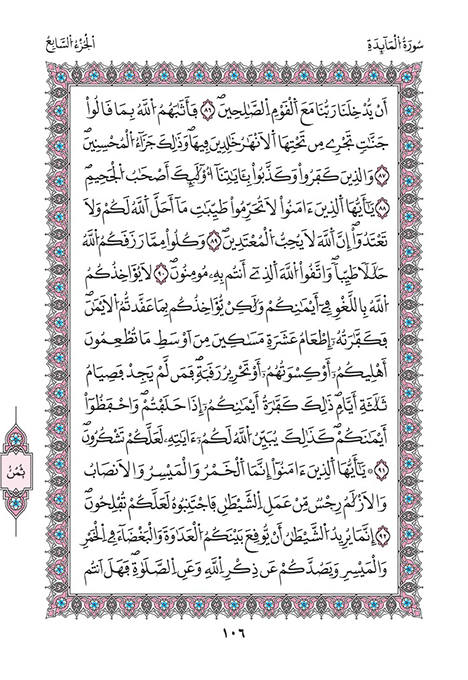 سُورَةُ الْمَآئِدَةِ
اَلْجُزْءُ السَّابِعُ
أَنْ يُّدْخِلَنَا رَبُّنَا مَعَ اَلْقَوْمِ اِلصَّٰلِحِينَۖ ٨٦ فَأَثَٰبَهُمُ اُللَّهُ بِمَا قَالُواْ
جَنَّٰتٖ تَجْرِے مِن تَحْتِهَا اَلَانْهَٰرُ خَٰلِدِينَ فِيهَاۖ وَذَٰلِكَ جَزَآءُ اُلْمُحْسِنِينَۖ
٨٧ وَالذِينَ كَفَرُواْ وَكَذَّبُواْ بِـَٔايَٰتِنَآ أُوْلَٰٓئِكَ أَصْحَٰبُ اُلْجَحِيمِۖ
٨٨ يَٰٓأَيُّهَا اَلذِينَ ءَامَنُواْ لَا تُحَرِّمُواْ طَيِّبَٰتِ مَآ أَحَلَّ اَللَّهُ لَكُمْ وَلَا
تَعْتَدُوٓاْۖ إِنَّ اَللَّهَ لَا يُحِبُّ اُلْمُعْتَدِينَۖ ٨٩ وَكُلُواْ مِمَّا رَزَقَكُمُ اُللَّهُ
حَلَٰلاٗ طَيِّباٗۖ وَاتَّقُواْ اُللَّهَ اَلذِےٓ أَنتُم بِهِۦ مُومِنُونَۖ ٩٠ لَا يُوَاخِذُكُمُ
اُللَّهُ بِاللَّغْوِ فِےٓ أَيْمَٰنِكُمْ وَلَٰكِنْ يُّوَاخِذُكُم بِمَا عَقَّدتُّمُ اُلَايْمَٰنَۖ
فَكَفَّٰرَتُهُۥٓ إِطْعَامُ عَشَرَةِ مَسَٰكِينَ مِنَ اَوْسَطِ مَا تُطْعِمُونَ
أَهْلِيكُمُۥٓ أَوْ كِسْوَتُهُمُۥٓ أَوْ تَحْرِيرُ رَقَبَةٖۖ فَمَن لَّمْ يَجِدْ فَصِيَامُ
ثَلَٰثَةِ أَيَّامٖۖ ذَٰلِكَ كَفَّٰرَةُ أَيْمَٰنِكُمُۥٓ إِذَا حَلَفْتُمْۖ وَاحْفَظُوٓاْ
أَيْمَٰنَكُمْۖ كَذَٰلِكَ يُبَيِّنُ اُللَّهُ لَكُمُۥٓ ءَايَٰتِهِۦ لَعَلَّكُمْ تَشْكُرُونَۖ
٩١ ۞ يَٰٓأَيُّهَا اَلذِينَ ءَامَنُوٓاْ إِنَّمَا اَلْخَمْرُ وَالْمَيْسِرُ وَالَانصَابُ
وَالَازْلَٰمُ رِجْسٞ مِّنْ عَمَلِ اِلشَّيْطَٰنِ فَاجْتَنِبُوهُ لَعَلَّكُمْ تُفْلِحُونَۖ
٩٢ إِنَّمَا يُرِيدُ اُلشَّيْطَٰنُ أَنْ يُّوقِعَ بَيْنَكُمُ اُلْعَدَٰوَةَ وَالْبَغْضَآءَ فِے اِلْخَمْرِ
وَالْمَيْسِرِ وَيَصُدَّكُمْ عَن ذِكْرِ اِللَّهِ وَعَنِ اِلصَّلَوٰةِۖ فَهَلَ اَنتُم
ثُمُنُ
١٠٦